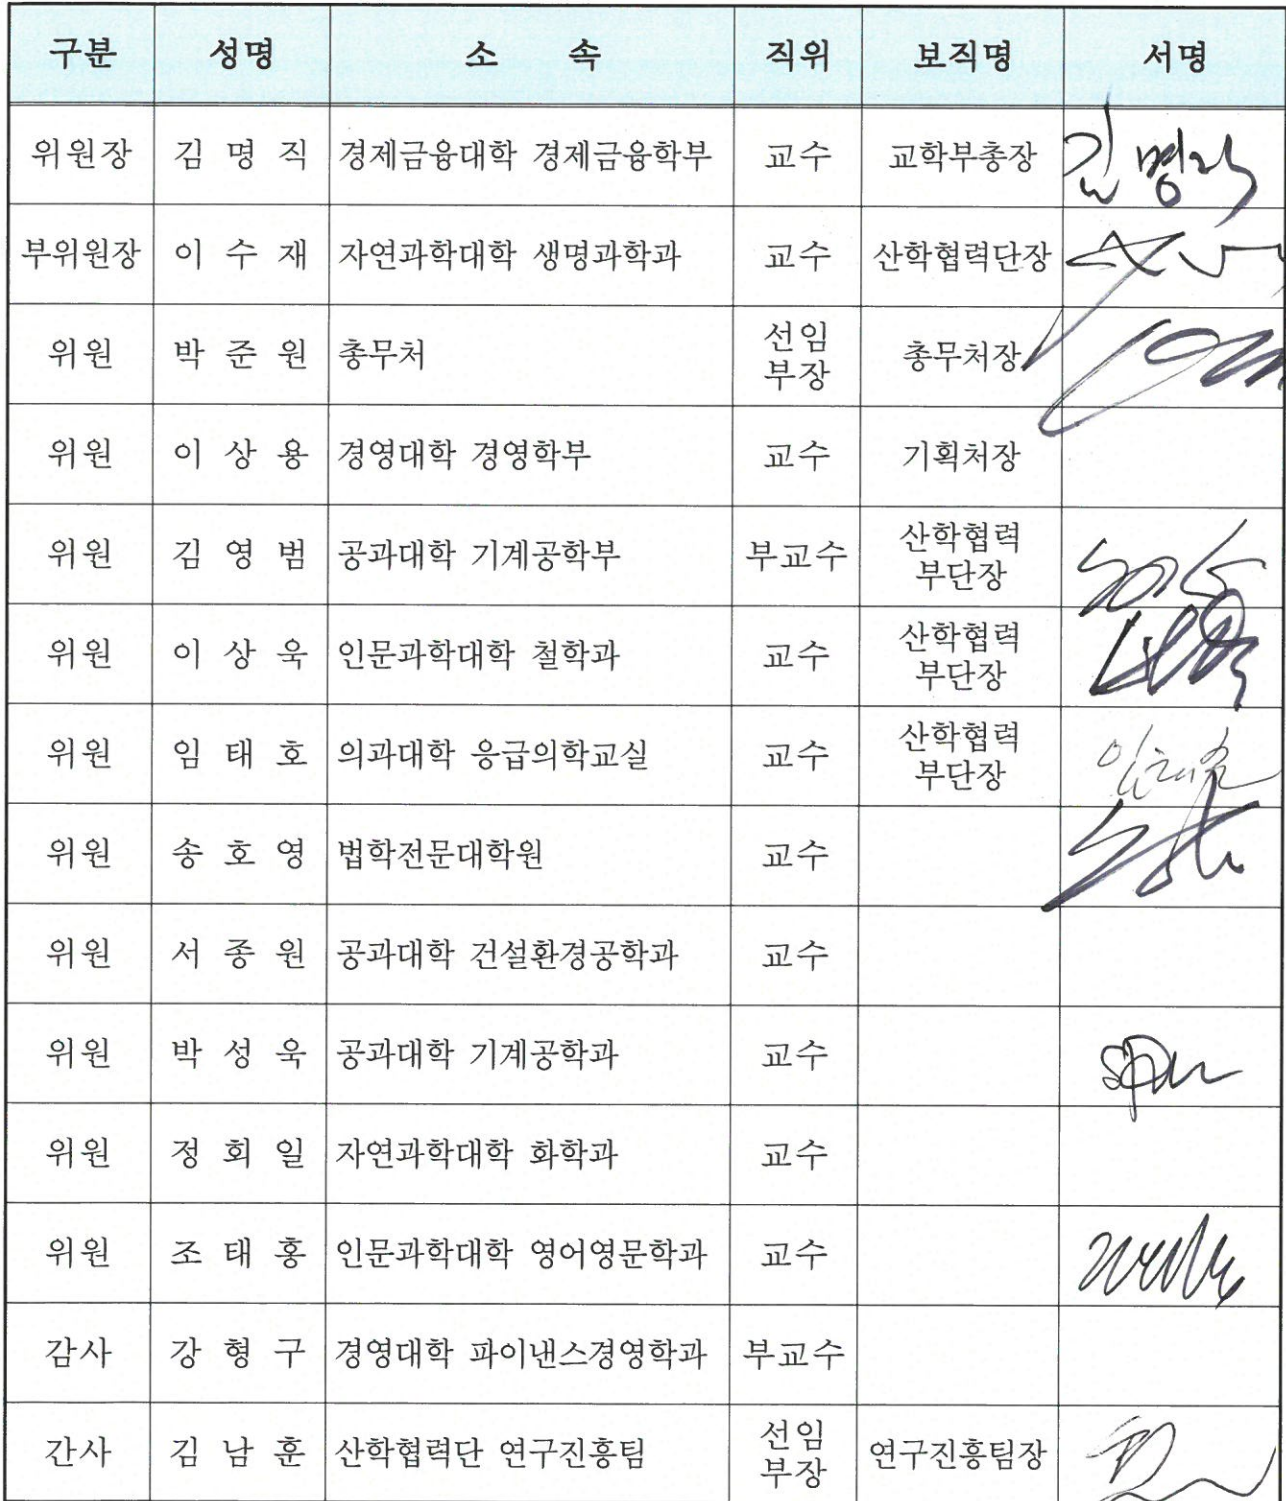 구분 성명 소 속 직위 보직명 서명
위원장 김 명 직 경제금융대학 경제금융학부 교수 교학부총장 김명직
부위원장 이 수 재 자연과학대학 생명과학과 교수 산학협력단장
위원 박 준 원 총무처 선임 부장 총무처장
위원 이 상 용 경영대학 경영학부 교수 기획처장
위원 김 영 범 공과대학 기계공학부 부교수 산학협력 부단장
위원 이 상 욱 인문과학대학 철학과 교수 산학협력 부단장
위원 임 태 호 의과대학 응급의학교실 교수 산학협력 부단장 임태호
위원 송 호 영 법학전문대학원 교수
위원 서 종 원 공과대학 건설환경공학과 교수
위원 박 성 욱 공과대학 기계공학과 교수
위원 정 회 일 자연과학대학 화학과 교수
위원 조 태 홍 인문과학대학 영어영문학과 교수
감사 강 형 구 경영대학 파이낸스경영학과 부교수
간사 김 남 훈 산학협력단 연구진흥팀 선임 부장 연구진흥팀장